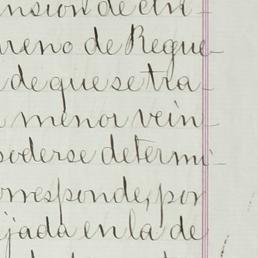 nsion de cin-
reno de Regue-
de que se tra-
menor vein-
poderse determi-
orresponde, por
ijada en la de